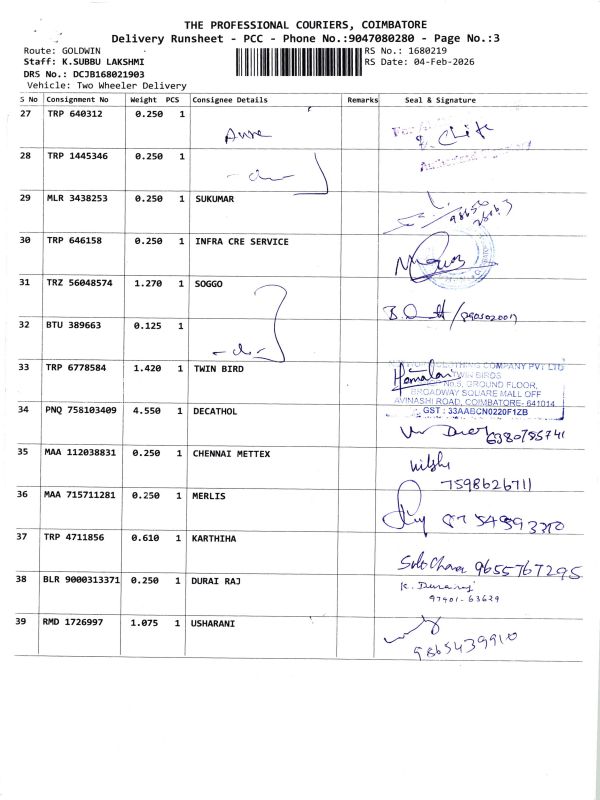 THE PROFESSIONAL COURIERS, COIMBATORE
Delivery Runsheet - PCC - Phone No.:9047080280 - Page No.:3
Route: GOLDWIN RS No.: 1680219
Staff: K.SUBBU LAKSHMI RS Date: 04-Feb-2026
DRS No.: DCJB168021903
Vehicle: Two Wheeler Delivery
S No Consignment No Weight PCS Consignee Details Remarks Seal & Signature
27 TRP 640312 0.250 1
28 TRP 1445346 0.250 1
- do -
29 MLR 3438253 0.250 1 SUKUMAR
30 TRP 646158 0.250 1 INFRA CRE SERVICE
31 TRZ 56048574 1.270 1 SOGGO
32 BTU 389663 0.125 1
- do -
33 TRP 6778584 1.420 1 TWIN BIRD
CLOTHING COMPANY PVT LTD
TWIN BIRDS
No.6, GROUND FLOOR,
BROADWAY SQUARE MALL OFF
AVINASHI ROAD, COIMBATORE- 641014
GST : 33AABCN0220F1ZB
34 PNQ 758103409 4.550 1 DECATHOL
6380785741
35 MAA 112038831 0.250 1 CHENNAI METTEX
7598626711
36 MAA 715711281 0.250 1 MERLIS
37 TRP 4711856 0.610 1 KARTHIHA
9655767295
38 BLR 9000313371 0.250 1 DURAI RAJ
K. Durairaj
97901-63629
39 RMD 1726997 1.075 1 USHARANI
9865439910